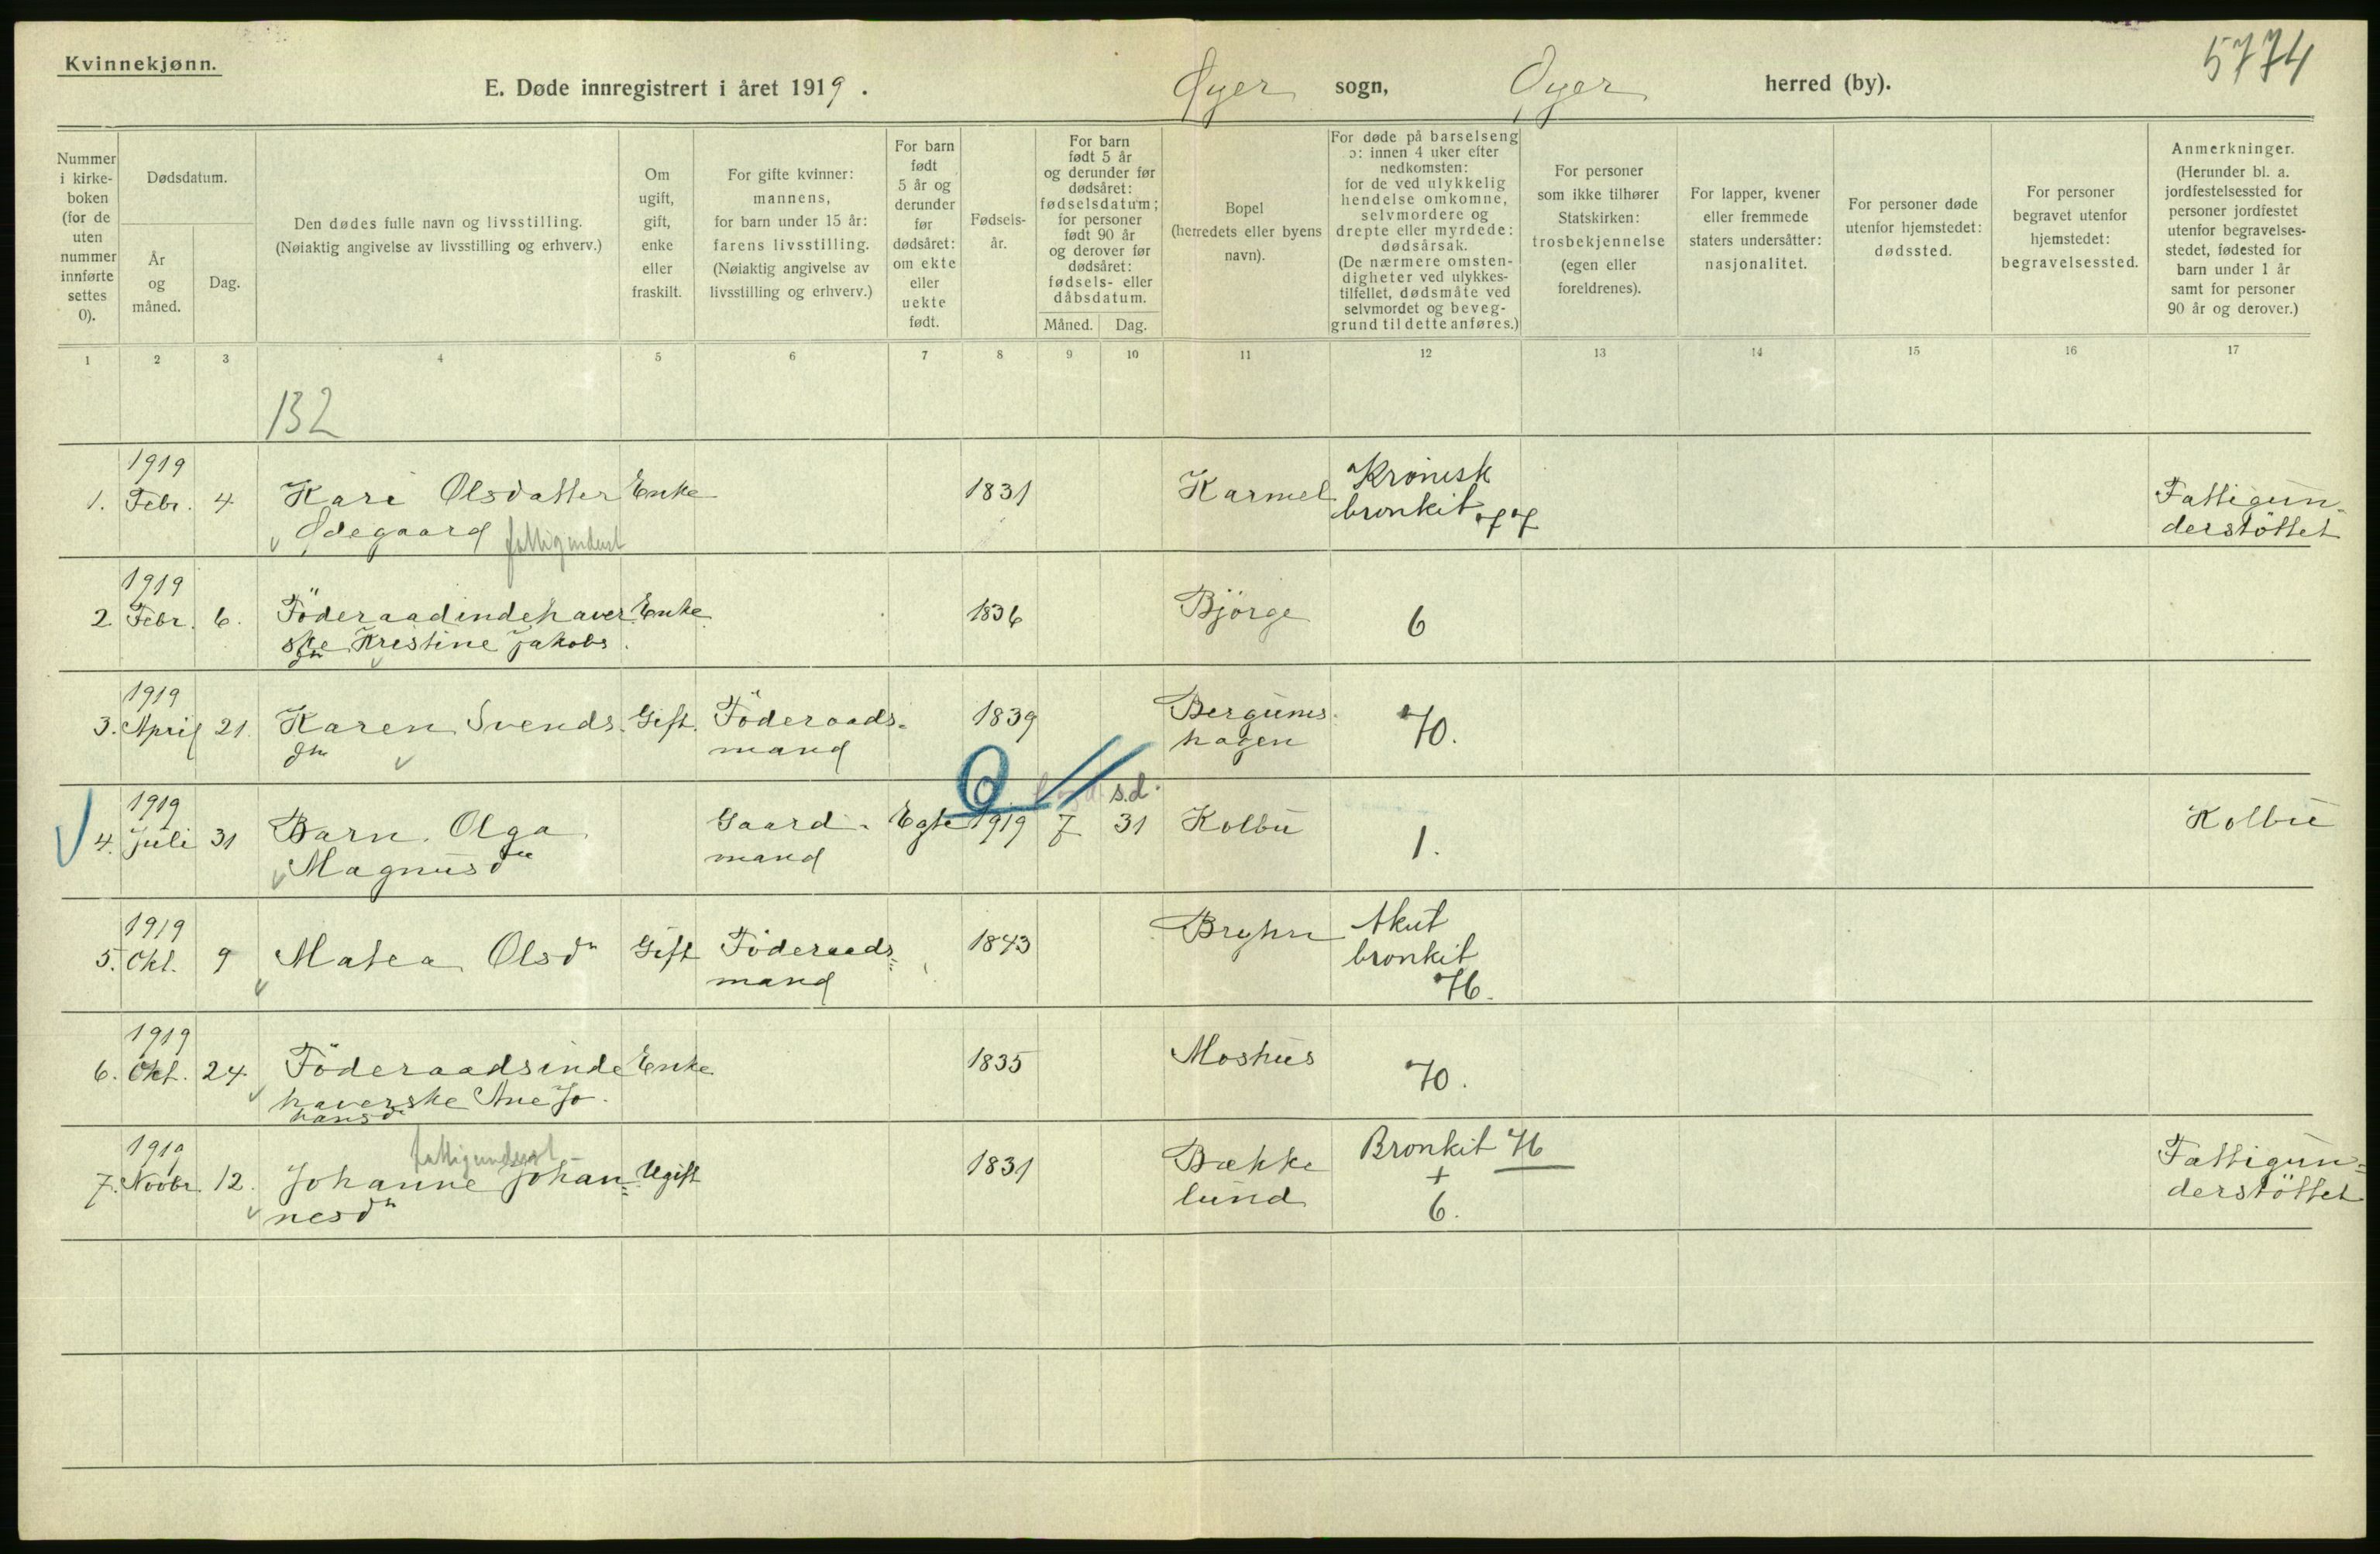 5774
Kvinnekjønn.
E. Døde innregistrert i året 1919. Øyer sogn, Øyer herred (by).
Nummer i kirke-boken (for de uten nummer innførte settes 0).
Dødsdatum.
År og måned.
Dag.
Den dødes fulle navn og livsstilling.
(Nøiaktig angivelse av livsstilling og erhverv.)
Om ugift, gift, enke eller fraskilt.
For gifte kvinner: mannens, for barn under 15 år: farens livsstilling. (Nøiaktig angivelse av livsstilling og erhverv.)
For barn født 5 år og derunder før dødsåret: om ekte eller uekte født.
Fødsels-år.
For barn født 5 år og derunder før dødsåret: fødselsdatum; for personer født 90 år og derover før dødsåret: fødsels- eller dåbsdatum.
Måned. Dag.
Bopel (herredets eller byens navn).
For døde på barselseng ɔ: innen 4 uker efter nedkomsten: for de ved ulykkelig hendelse omkomne, selvmordere og drepte eller myrdede: dødsårsak. (De nærmere omsten-digheter ved ulykkes-tilfellet, dødsmåte ved selvmordet og beveg-grund til dette anføres.)
For personer som ikke tilhører Statskirken: trosbekjennelse (egen eller foreldrenes).
For lapper, kvener eller fremmede staters undersåtter: nasjonalitet.
For personer døde utenfor hjemstedet: dødssted.
For personer begravet utenfor hjemstedet: begravelsessted.
Anmerkninger.
(Herunder bl. a. jordfestelsessted for personer jordfestet utenfor begravelses-stedet, fødested for barn under 1 år samt for personer 90 år og derover.)
1 2 3 4 5 6 7 8 9 10 11 12 13 14 15 16 17
132
1919
1. Febr. 4 Kari Olsdatter Enke 1831 Karmel Kronisk Fattigun-
Ødegaard fattigunderst bronkit derstöttet
1919
2 Febr. 6. Föderaadindehaver Enke 1836 Björge 6
ske Kristine Jakobs
dn
1919
3. April 21. Karen Svends. Gift. Föderaads- 1839 Bergums 70.
dn mand hagen
s.d.
1919
4. Juli 31 Barn Olga Gaard- Egte 1919 7 31 Kolbu 1. Kolbu
Magnusdn mand
1919
5. Okt. 9 Matea Olsdn Gift Föderaads 1843 Bryhn Akut
mand bronkit
76.
1919
6. Okt. 24 Föderaadsinde Enke 1835 Moshus 70.
haverske Ane Jo
hansd
1919 fattigunderst
7. Novbr. 12. Johanne Johan= Ugift 1831 Bække Bronkit 76 Fattigun=
nesdn lund + derstöttet
6.